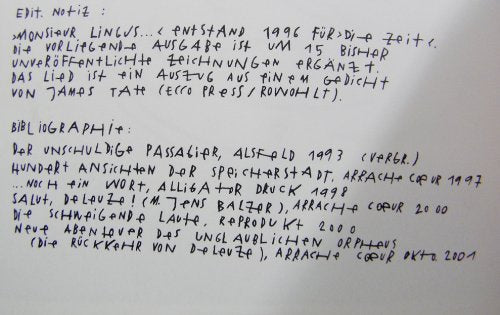 EDIT. NOTIZ :
>MONSIEUR LINGUS...< ENTSTAND 1996 FÜR >DIE ZEIT<.
DIE VORLIEGENDE AUSGABE IST UM 15 BISHER
UNVERÖFFENTLICHTE ZEICHNUNGEN ERGÄNZT.
DAS LIED IST EIN AUSZUG AUS EINEM GEDICHT
VON JAMES TATE (ECCO PRESS/ROWOHLT).
BIBLIOGRAPHIE:
DER UNSCHULDIGE PASSAGIER, ALSFELD 1993 (VERGR.)
HUNDERT ANSICHTEN DER SPEICHERSTADT, ARRACHE CŒUR 1997
...NOCH EIN WORT, ALLIGATOR DRUCK 1998
SALUT, DELEUZE! (M. JENS BALZER), ARRACHE CŒUR 2000
DIE SCHWEIGENDE LAUTE, REPRODUKT 2000
NEUE ABENTEUER DES UNGLAUBLICHEN ORPHEUS
(DIE RÜCKKEHR VON DELEUZE), ARRACHE CŒUR OKTO. 2001